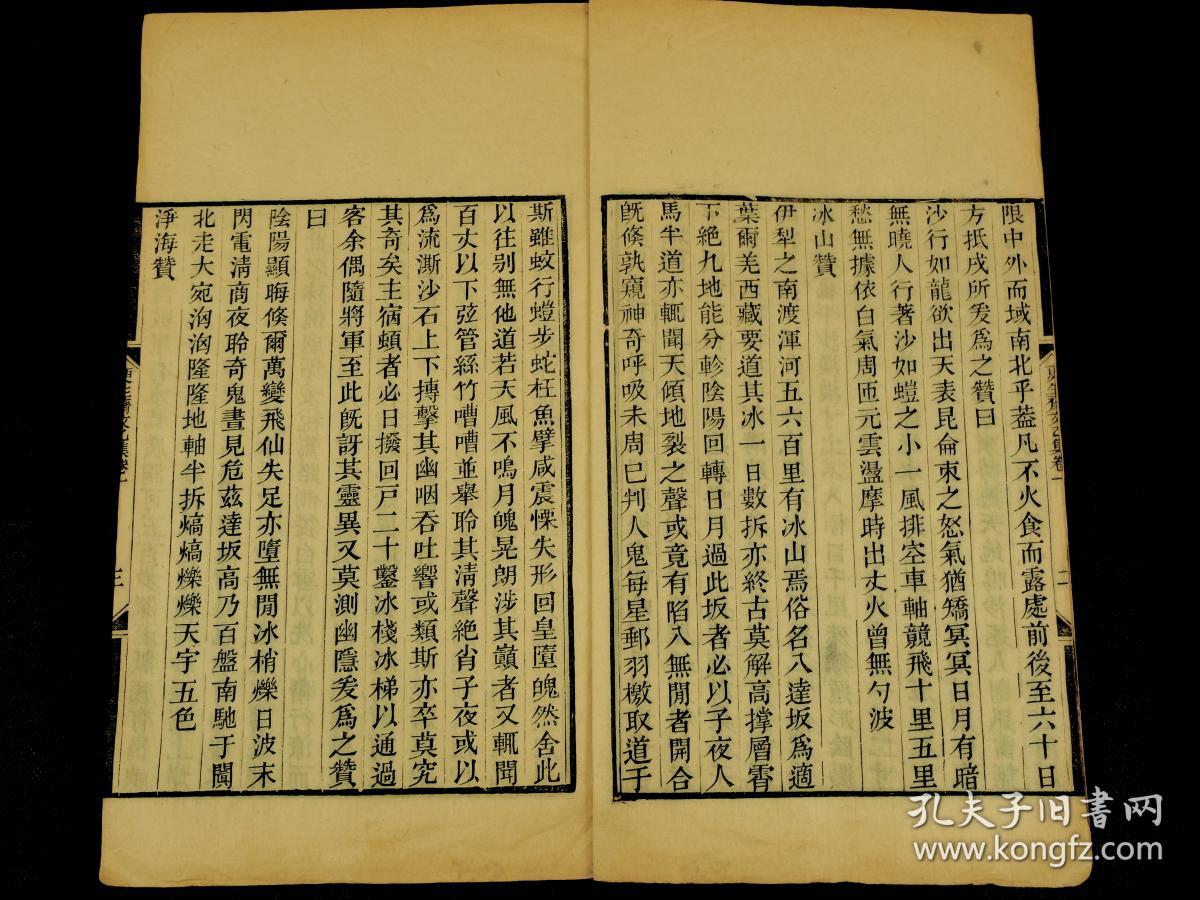 限中外而域南北乎葢凡不火食而露處前後至六十日
方抵戌所爰爲之贊曰
沙行如龍欲出天表昆侖束之怒氣猶矯冥冥日月有暗
無曉人行著沙如螘之小一風排空車軸競飛十里五里
愁無據依白氣周匝元雲盪摩時出丈火曾無勺波
冰山贊
伊犁之南渡渾河五六百里有冰山焉俗名八達坂爲適
葉爾羌西藏要道其冰一日數拆亦終古莫解高撐層霄
下絶九地能分軫陰陽回轉日月過此坂者必以子夜人
馬半道亦輒聞天傾地裂之聲或竟有陷入無閒者開合
旣倏孰窺神奇呼吸未周已判人鬼每星郵羽檄取道于
斯雖蚊行螘步蛇枉魚擘咸震慄失形回皇墮魄然舍此
以往别無他道若天風不鳴月魄晃朗涉其巔者又輒聞
百丈以下弦管絲竹嘈嘈並舉聆其淸聲絶肖子夜或以
爲流澌沙石上下摶擊其幽咽吞吐響或類斯亦卒莫究
其奇矣主宿頓者必日撥回戸二十鑿冰棧冰梯以通過
客余偶隨將軍至此旣訝其靈異又莫測幽隱爰爲之贊
曰
陰陽顯晦倏爾萬變飛仙失足亦墮無閒冰梢爍日波末
閃電淸商夜聆奇鬼晝見危茲達坂高乃百盤南馳于闐
北走大宛洶洶隆隆地軸半拆熇熇爍爍天宇五色
淨海贊
二
三
孔夫子旧書网
www.kongfz.com